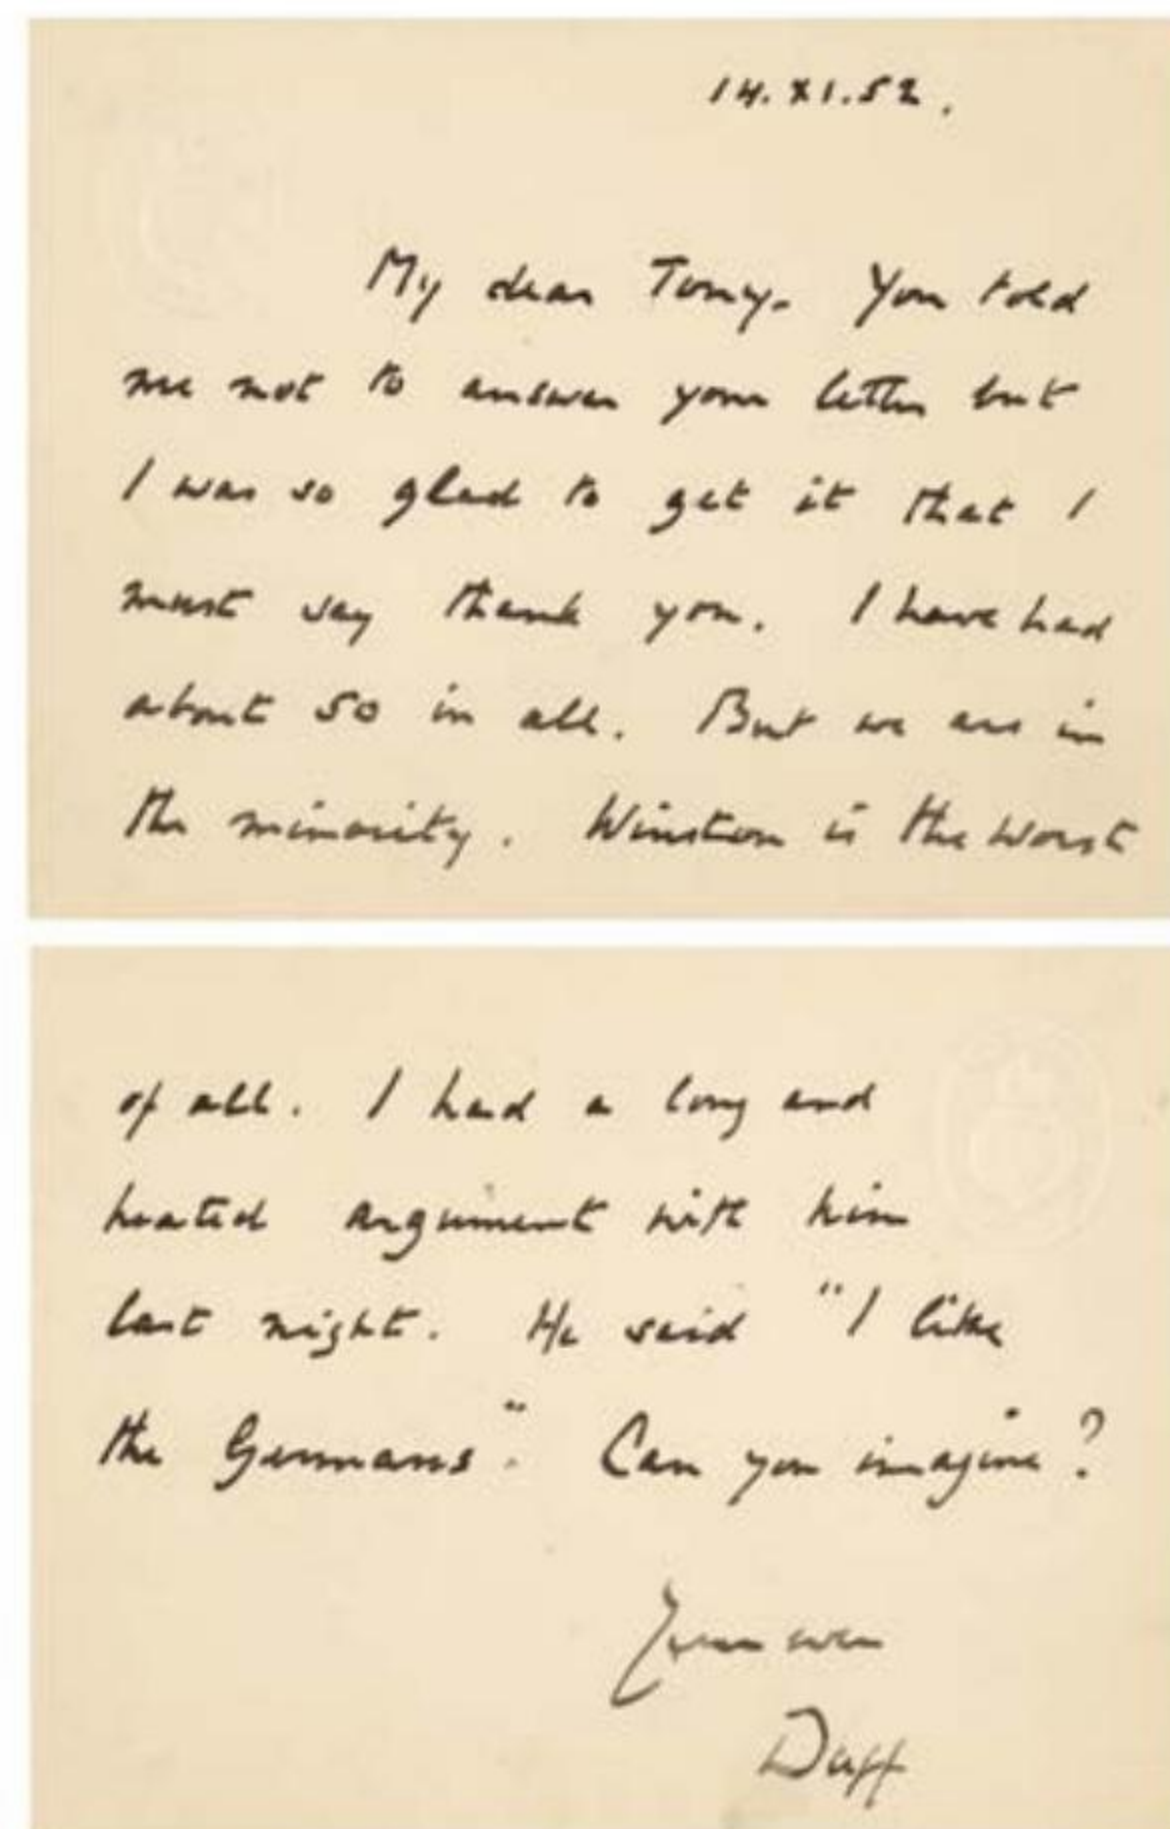 14.XI.52.
My dear Tony. You told
me not to answer your letter but
I was so glad to get it that I
must say thank you. I have had
about 50 in all. But we are in
the minority. Winston is the worst
of all. I had a long and
heated argument with him
last night. He said "I like
the Germans". Can you imagine?
Yours ever
Duff